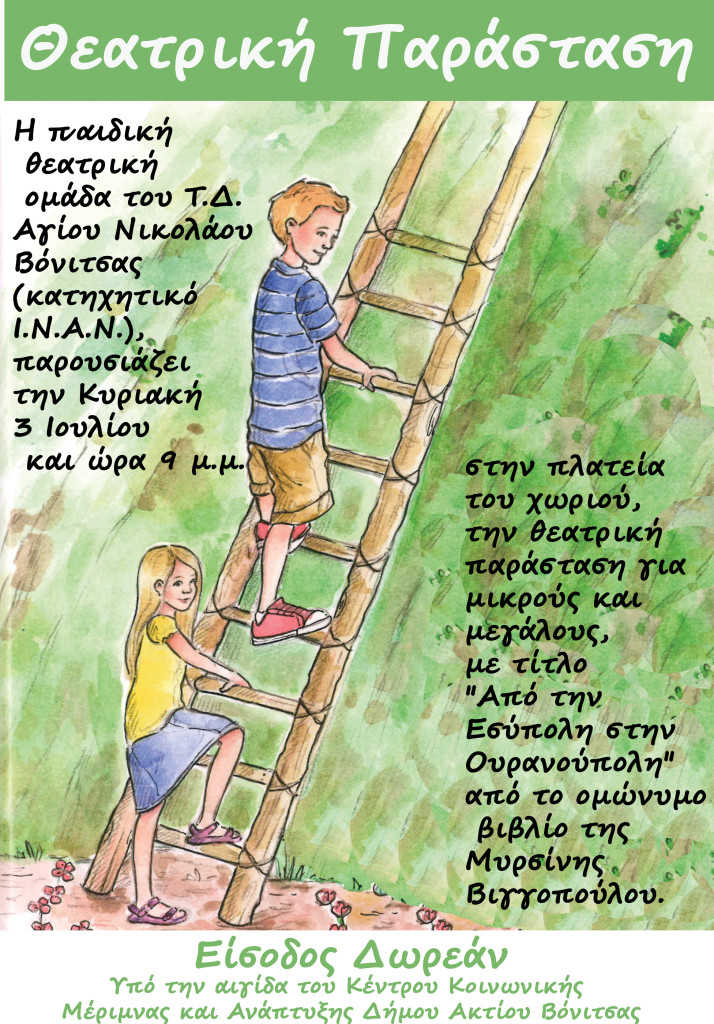 Θεατρική Παράσταση
Η παιδική
θεατρική
ομάδα του Τ.Δ.
Αγίου Νικολάου
Βόνιτσας
(κατηχητικό
Ι.Ν.Α.Ν.),
παρουσιάζει
την Κυριακή
3 Ιουλίου
και ώρα 9 μ.μ.
στην πλατεία
του χωριού,
την θεατρική
παράσταση για
μικρούς και
μεγάλους,
με τίτλο
"Από την
Εσύπολη στην
Ουρανούπολη"
από το ομώνυμο
βιβλίο της
Μυρσίνης
Βιγγοπούλου.
Είσοδος Δωρεάν
Υπό την αιγίδα του Κέντρου Κοινωνικής
Μέριμνας και Ανάπτυξης Δήμου Ακτίου Βόνιτσας